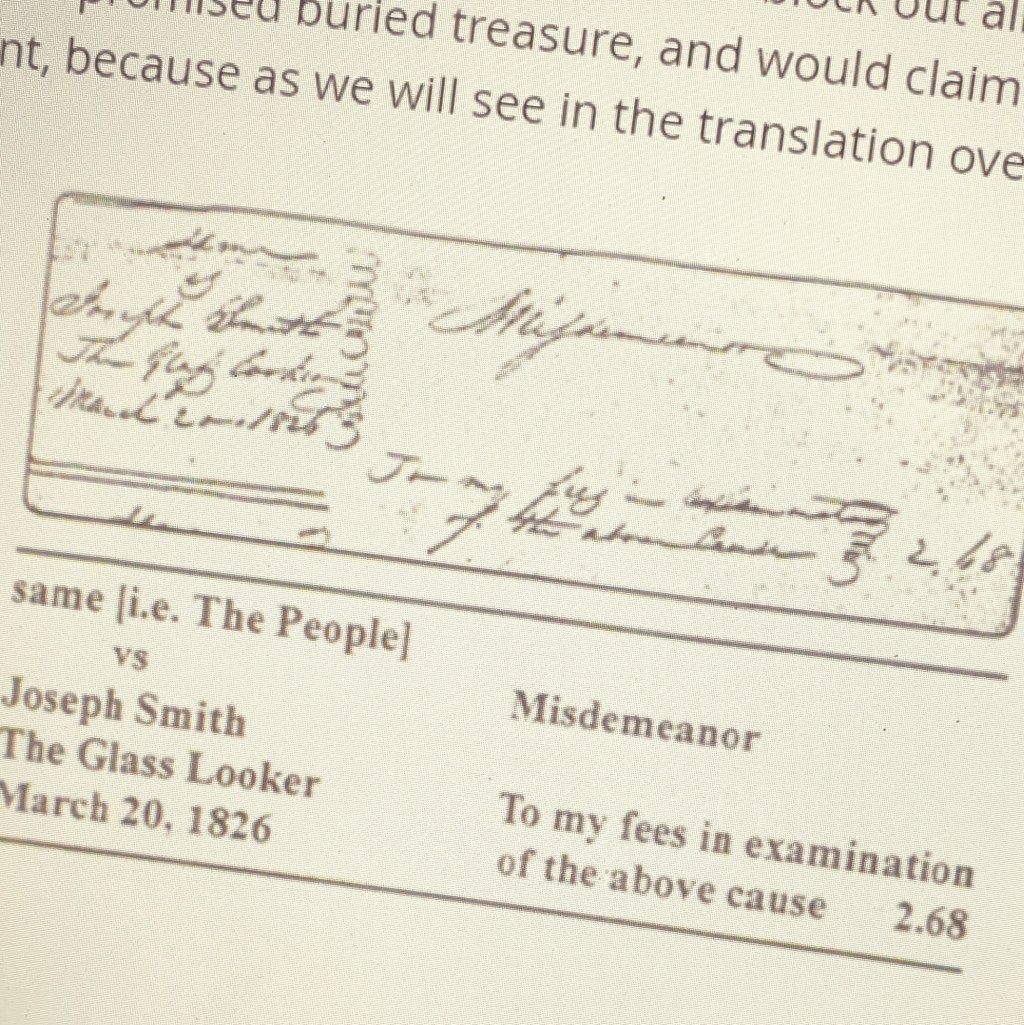 promised buried treasure, and would claim
because as we will see in the translation
Same
vs
Joseph Smith
The Glass Looker
March 20, 1826
Misdemeanor
To my fees in examination
of the above cause 2.68
same [i.e. The People]
vs
Joseph Smith
The Glass Looker
March 20, 1826
Misdemeanor
To my fees in examination
of the above cause 2.68